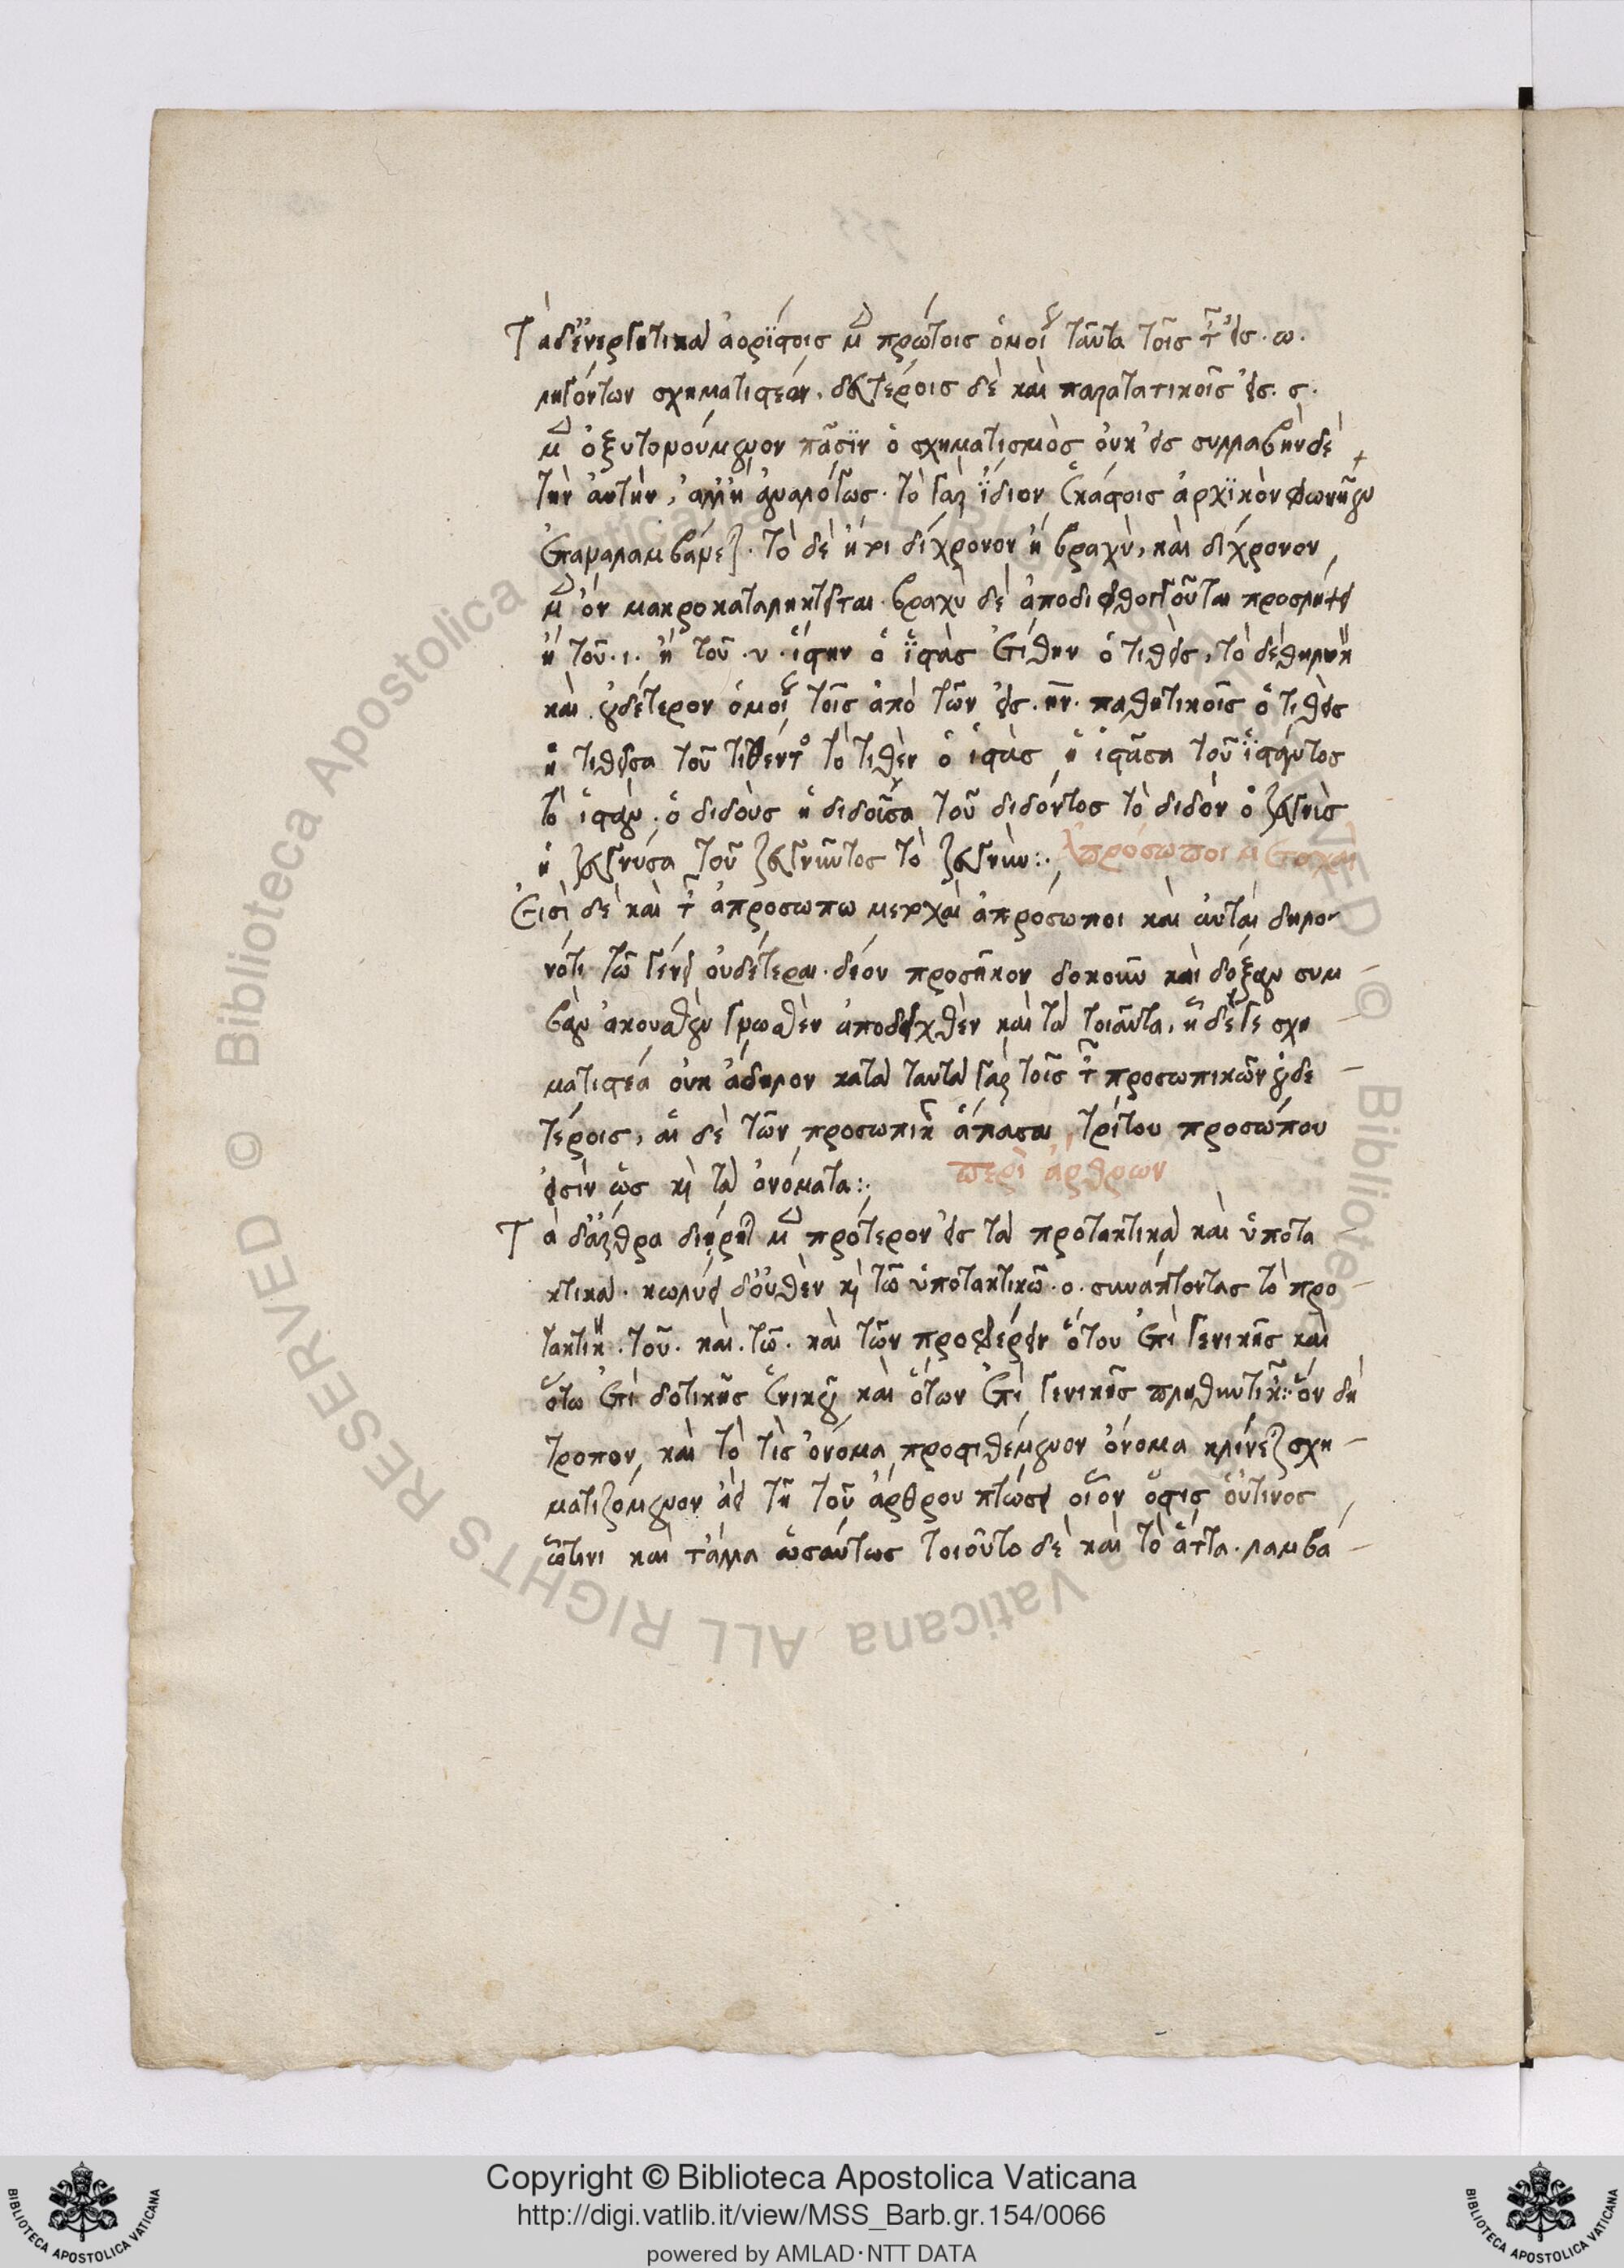 Τὰ δ' ἐνεργητικὰ ἀορίστοις μὲν πρώτοις ὁμοί ταῦτα τοῖς τῶν εἰς . ω .
ληγόντων σχηματιστέον . δευτέροις δὲ καὶ παρατατικοῖς εἰς . ς .
μὲν ὀξυτονούμενον πᾶσιν ὁ σχηματισμὸς οὐκ εἰς συλλαβὴν δὲ
τὴν αὐτὴν , ἀλλ' ἢ ἀναλόγως . τὸ γὰρ ἴδιον ἑκάστοις ἀρχικὸν φωνῆεν
δίχρονον ἢ βραχὺ , καὶ δίχρονον
μὲν ὂν μακροκαταληκτεῖται . βραχὺ δὲ ἀποδιφθογγοῦται προσλήψει
ἢ τοῦ . ι . ἢ τοῦ . υ . ἵστην ὁ ἱστὰς ἐτίθην ὁ τιθεὶς , τὸ δὲ θηλυκὸν
καὶ οὐδέτερον ὁμοί τοῖς ἀπὸ τῶν εἰς . ην . παθητικοῖς ὁ τιθεὶς
ἡ τιθεῖσα τοῦ τιθέντος τὸ τιθὲν ὁ ἱστὰς ἡ ἱστᾶσα τοῦ ἱστάντος
τὸ ἱστὰν . ὁ διδοὺς ἡ διδοῦσα τοῦ διδόντος τὸ διδὸν ὁ ζευγνὺς
ἡ ζευγνύσα τοῦ ζευγνῦντος τὸ ζευγνὺν :. ἀπρόσωποι μετοχαὶ
Εἰσὶ δὲ καὶ τῶν ἀπροσώπων μετοχαὶ ἀπρόσωποι καὶ αὐταὶ δηλο
νότι τῷ γένει οὐδέτεραι . δέον προσῆκον δοκοῦν καὶ δόξαν συμ –
βὰν ἀκουσθὲν γνωσθὲν ἀποδειχθὲν καὶ τὰ τοιαῦτα , σχη –
ματιστέα οὐκ ἄδηλον κατὰ ταυτὰ γὰρ τοῖς τῶν προσωπικῶν οὐδε –
τέροις , αἱ δὲ τῶν προσωπικῶν ἅπασαι τρίτου προσώπου
εἰσὶν ὡς καὶ τὰ ὀνόματα :. περὶ ἄρθρων
Τὰ δ' ἄρθρα διῄρηται μὲν πρότερον εἰς τὰ προτακτικὰ καὶ ὑποτα
κτικὰ . κωλύει δ' οὐθὲν καὶ τῷ ὑποτακτικῷ . ο . συνάπτοντας τὸ προ –
τακτικὸν . τοῦ . καὶ . τῷ . καὶ τῶν προφέρειν ὅτου ἐπὶ γενικῆς καὶ
ὅτῳ ἐπὶ δοτικῆς ἑνικοῦ καὶ ὅτων ἐπὶ γενικῆς πληθυντικῶν : ὃν δὴ
τρόπον καὶ τὸ τὶς ὄνομα προστιθέμενον ὄνομα κλίνεται σχη –
ματιζόμενον ἀεὶ τῇ τοῦ ἄρθρου πτώσει οἷον ὅστις οὕτινος
ᾧτινι καὶ τἄλλα ὡσαύτως τοιοῦτο δὲ καὶ τὸ ἅττα . λαμβά –
Copyright © Biblioteca Apostolica Vaticana
http://digi.vatlib.it/view/MSS_Barb.gr.154/0066
powered by AMLAD·NTT DATA
BIBLIOTECA APOSTOLICA VATICANA
BIBLIOTECA APOSTOLICA VATICANA